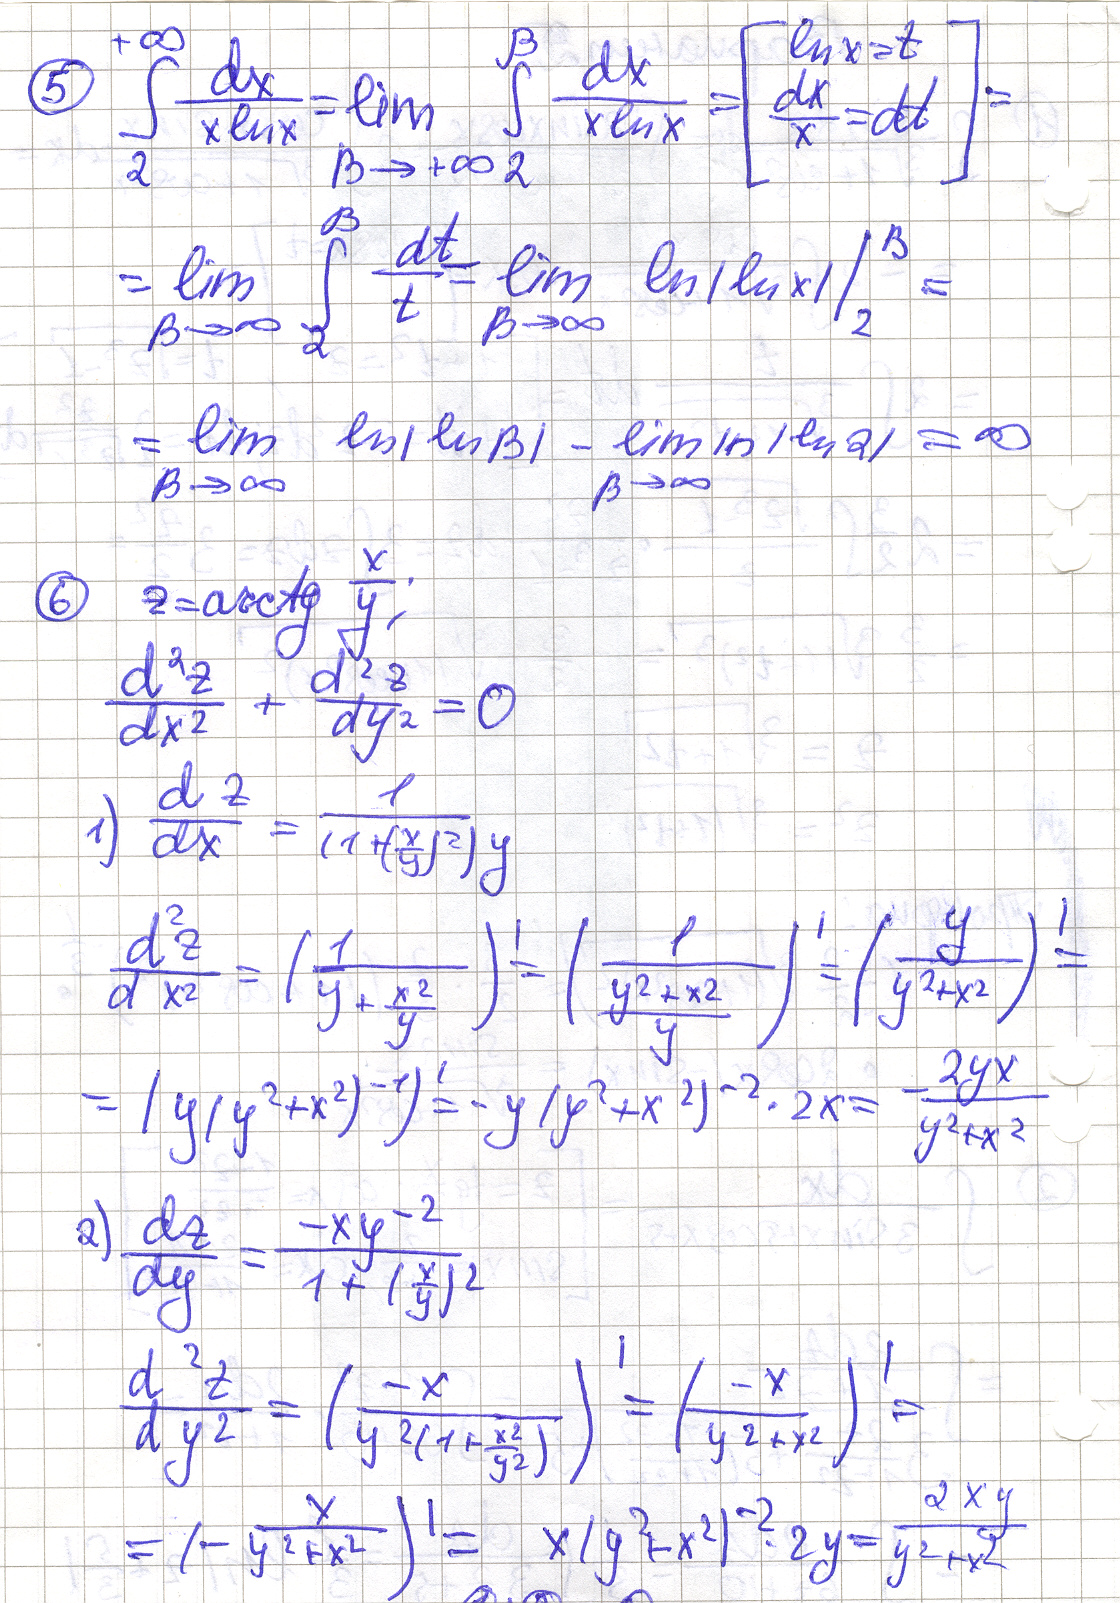 5) ∫_2^{+∞} dx/(x ln x) = lim_{B→+∞} ∫_2^B dx/(x ln x) = [ln x = t; dx/x = dt] =
= lim_{B→∞} ∫_2^B dt/t = lim_{B→∞} ln|ln x| |_2^B =
= lim_{B→∞} ln|ln B| - lim_{B→∞} ln|ln 2| = ∞
6) z = arctg x/y;
d²z/dx² + d²z/dy² = 0
1) dz/dx = 1/((1+(x/y)²)y)
d²z/dx² = (1/(y + x²/y))' = (1/((y²+x²)/y))' = (y/(y²+x²))' =
= (y(y²+x²)^{-1})' = -y(y²+x²)^{-2} · 2x = -2yx/(y²+x²)
2) dz/dy = -xy^{-2}/(1+(x/y)²)
d²z/dy² = (-x/(y²(1+x²/y²)))' = (-x/(y²+x²))' =
= (-x/(y²+x²))' = x(y²+x²)^{-2} · 2y = 2xy/(y²+x²)